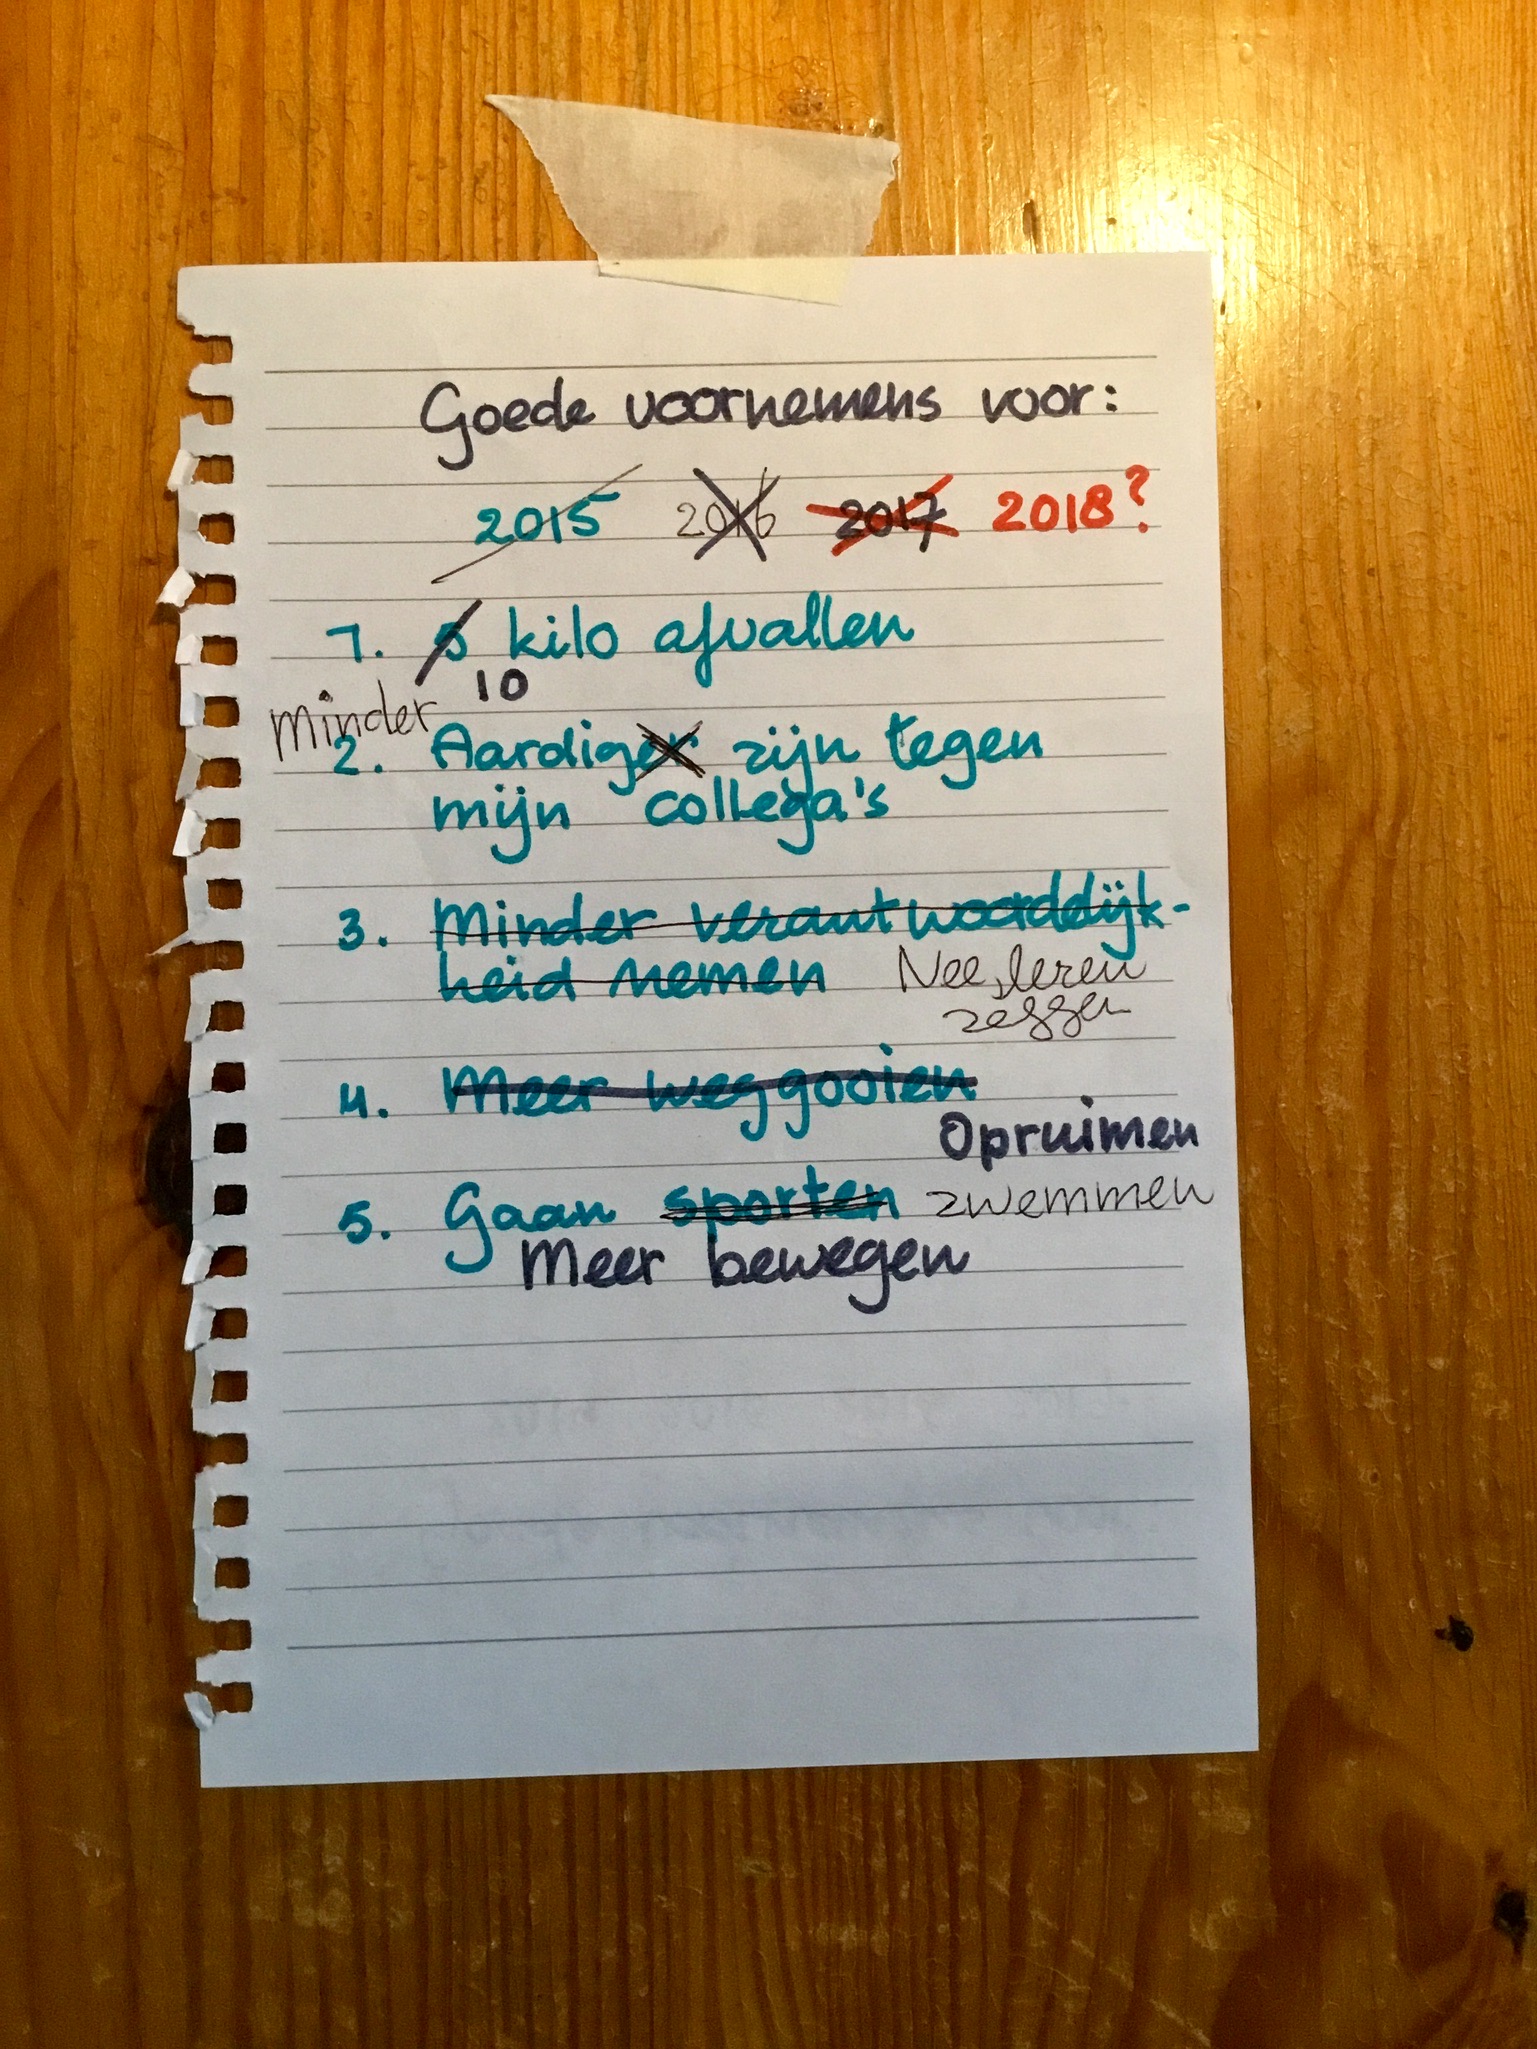 Goede voornemens voor:
2015 2016 2017 2018?
1. 5 kilo afvallen
10
minder
2. Aardiger zijn tegen
mijn collega's
3. Minder verantwoordelijk-
heid nemen Nee, leren
zeggen
4. Meer weggooien
Opruimen
5. Gaan sporten zwemmen
Meer bewegen